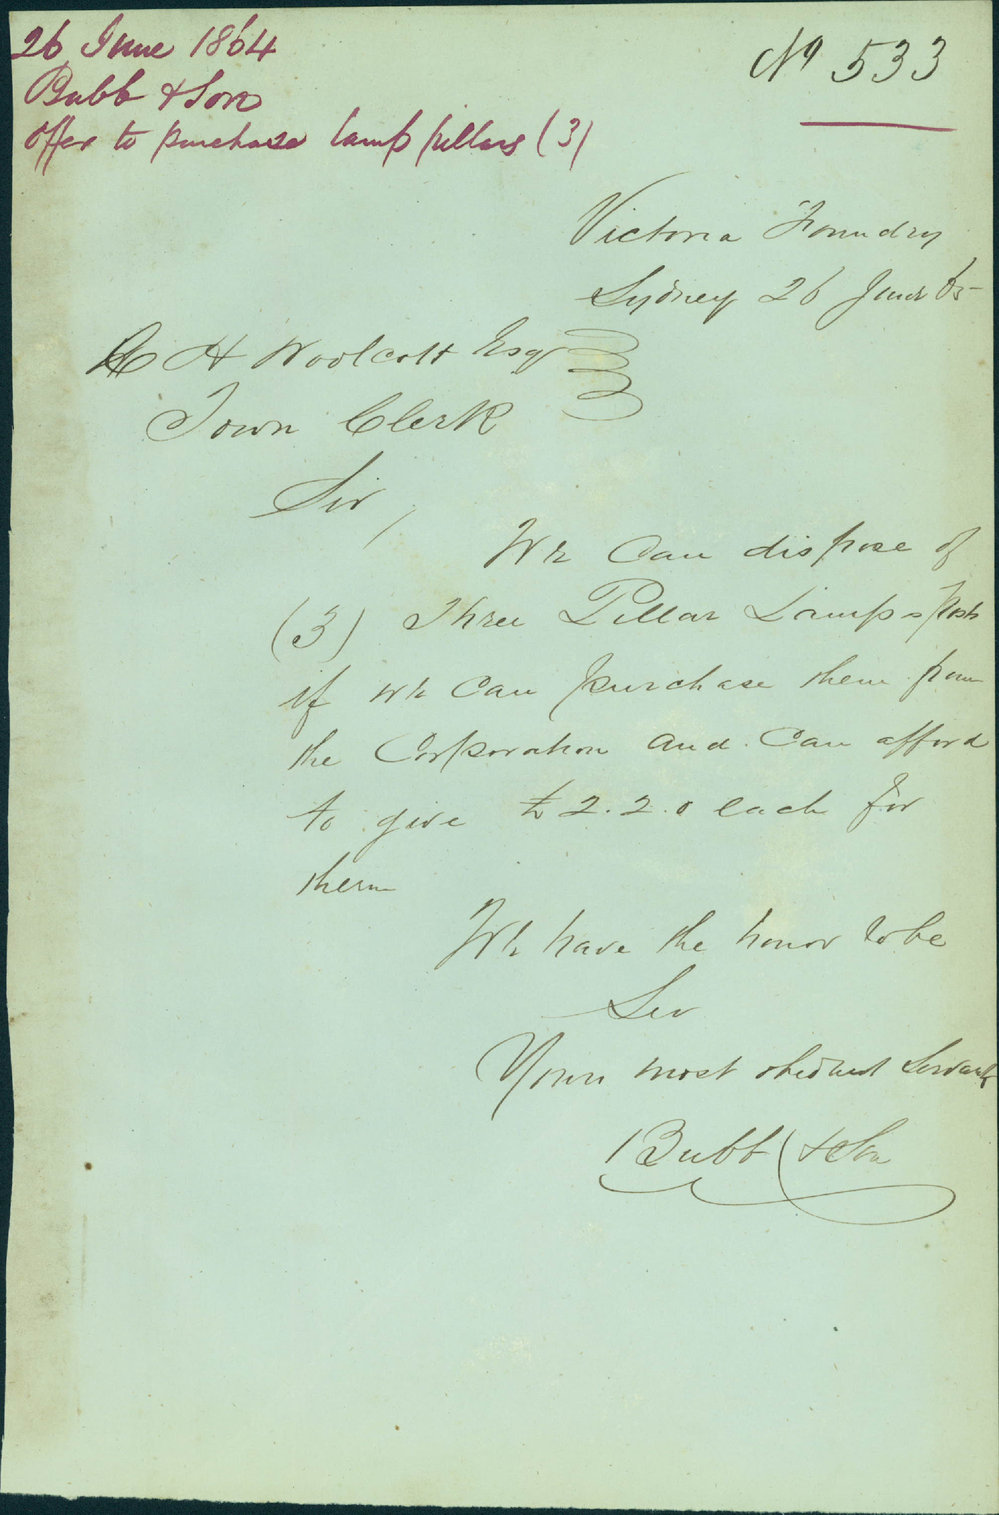 26 June 1864
Bubb & Son
Offer to purchase lamp pillars (3)
No 533
Victoria Foundry
Sydney 26 June 65
C H Woolcott Esqr
Town Clerk
Sir,
We Can dispose of
(3) Three Pillar Lamps posts
if we Can purchase them from
the Corporation and Can afford
to give £2.2.0 each for
them
We have the honor to be
Sir
Your most obedient Servants
Bubb & Son